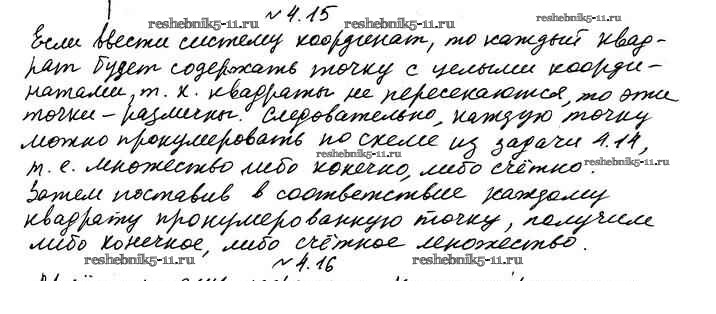 № 4.15
reshebnik5-11.ru
Если ввести систему координат, то каждый квад-
рат будет содержать точку с целыми коорди-
натами, т. к. квадраты не пересекаются, то эти
точки - различны. Следовательно, каждую точку
можно пронумеровать по схеме из задачи 4.14,
reshebnik5-11.ru
т. е. множество либо конечно, либо счётно.
Затем поставив в соответствие каждому
квадрату пронумерованную точку, получим
либо конечное, либо счётное множество.
reshebnik5-11.ru
№ 4.16
reshebnik5-11.ru